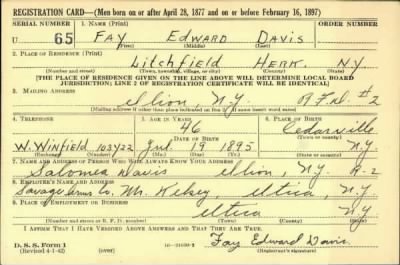 REGISTRATION CARD—(Men born on or after April 28, 1877 and on or before February 16, 1897)
SERIAL NUMBER 1. NAME (Print) ORDER NUMBER
U 65 FAY EDWARD DAVIS
(First) (Middle) (Last)
2. PLACE OF RESIDENCE (Print)
Litchfield Herk. NY
(Number and street) (Town, township, village, or city) (County) (State)
[THE PLACE OF RESIDENCE GIVEN ON THE LINE ABOVE WILL DETERMINE LOCAL BOARD
JURISDICTION; LINE 2 OF REGISTRATION CERTIFICATE WILL BE IDENTICAL]
3. MAILING ADDRESS
Ilion N.Y. R.F.D. #2
(Mailing address if other than place indicated on line 2. If same insert word same)
4. TELEPHONE 5. AGE IN YEARS 6. PLACE OF BIRTH
46 Cedarville
DATE OF BIRTH (Town or county)
W. Winfield 103Y22 Jul. 19 1895 N.Y.
(Exchange) (Number) (Mo.) (Day) (Yr.) (State or country)
7. NAME AND ADDRESS OF PERSON WHO WILL ALWAYS KNOW YOUR ADDRESS
Salomea Davis Ilion, N.Y. R-2
8. EMPLOYER'S NAME AND ADDRESS
Savage Arms Co. Mr. Kelsey, Utica, N.Y.
9. PLACE OF EMPLOYMENT OR BUSINESS
Utica N.Y.
(Number and street or R. F. D. number) (Town) (County) (State)
I AFFIRM THAT I HAVE VERIFIED ABOVE ANSWERS AND THAT THEY ARE TRUE.
D. S. S. Form 1
(Revised 4-1-42) (over) Fay Edward Davis
(Registrant's signature)